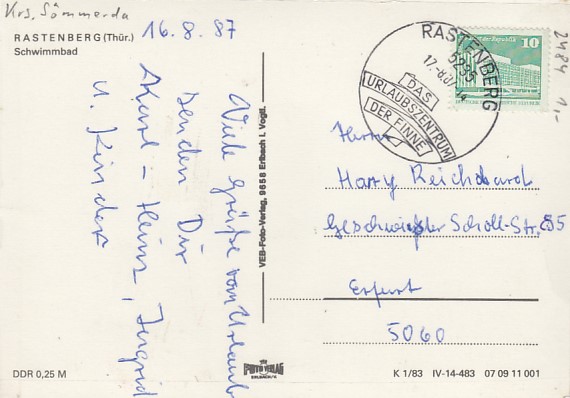 Krs. Sömmerda
RASTENBERG (Thür.)
Schwimmbad
16.8.87
Viele Grüße vom Urlaub
senden Dir
Karl-Heinz, Ingrid
u. Kinder
VEB-Foto-Verlag, 9658 Erlbach i. Vogtl.
RASTENBERG
5235
17.-8.87
DAS
URLAUBSZENTRUM
DER FINNE
10
2484 1,-
Herrn
Harry Reichhard
Geschwister-Scholl-Str. 85
Erfurt
5060
DDR 0,25 M
FOTO VERLAG
K 1/83 IV-14-483 07 09 11 001